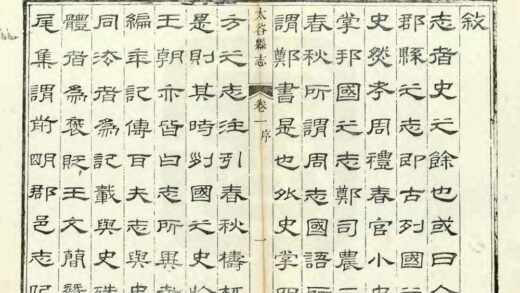 敘
志者史之餘也或曰今
郡縣之志即古列國之
史考周禮春官小史
掌邦國之志鄭司農
春秋所謂周志國語所
謂鄭書是也外史掌四
太谷縣志
卷一
序
一
方之志注引春秋檮杌
是則其時列國之史
王朝亦皆曰志所異
編年記傳耳夫志與史
同者為記載與史
體者為褒貶王文簡
尾集謂前明郡邑志